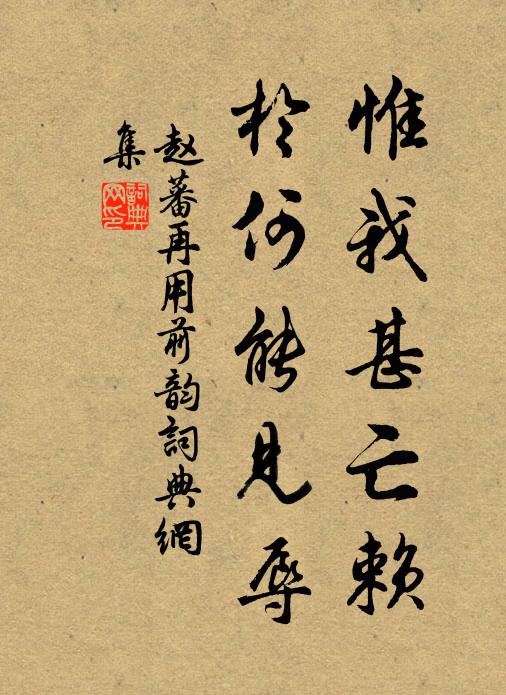 惟我甚亡赖
於何能见辱
赵蕃再用前韵詞典網
集
詞典網印